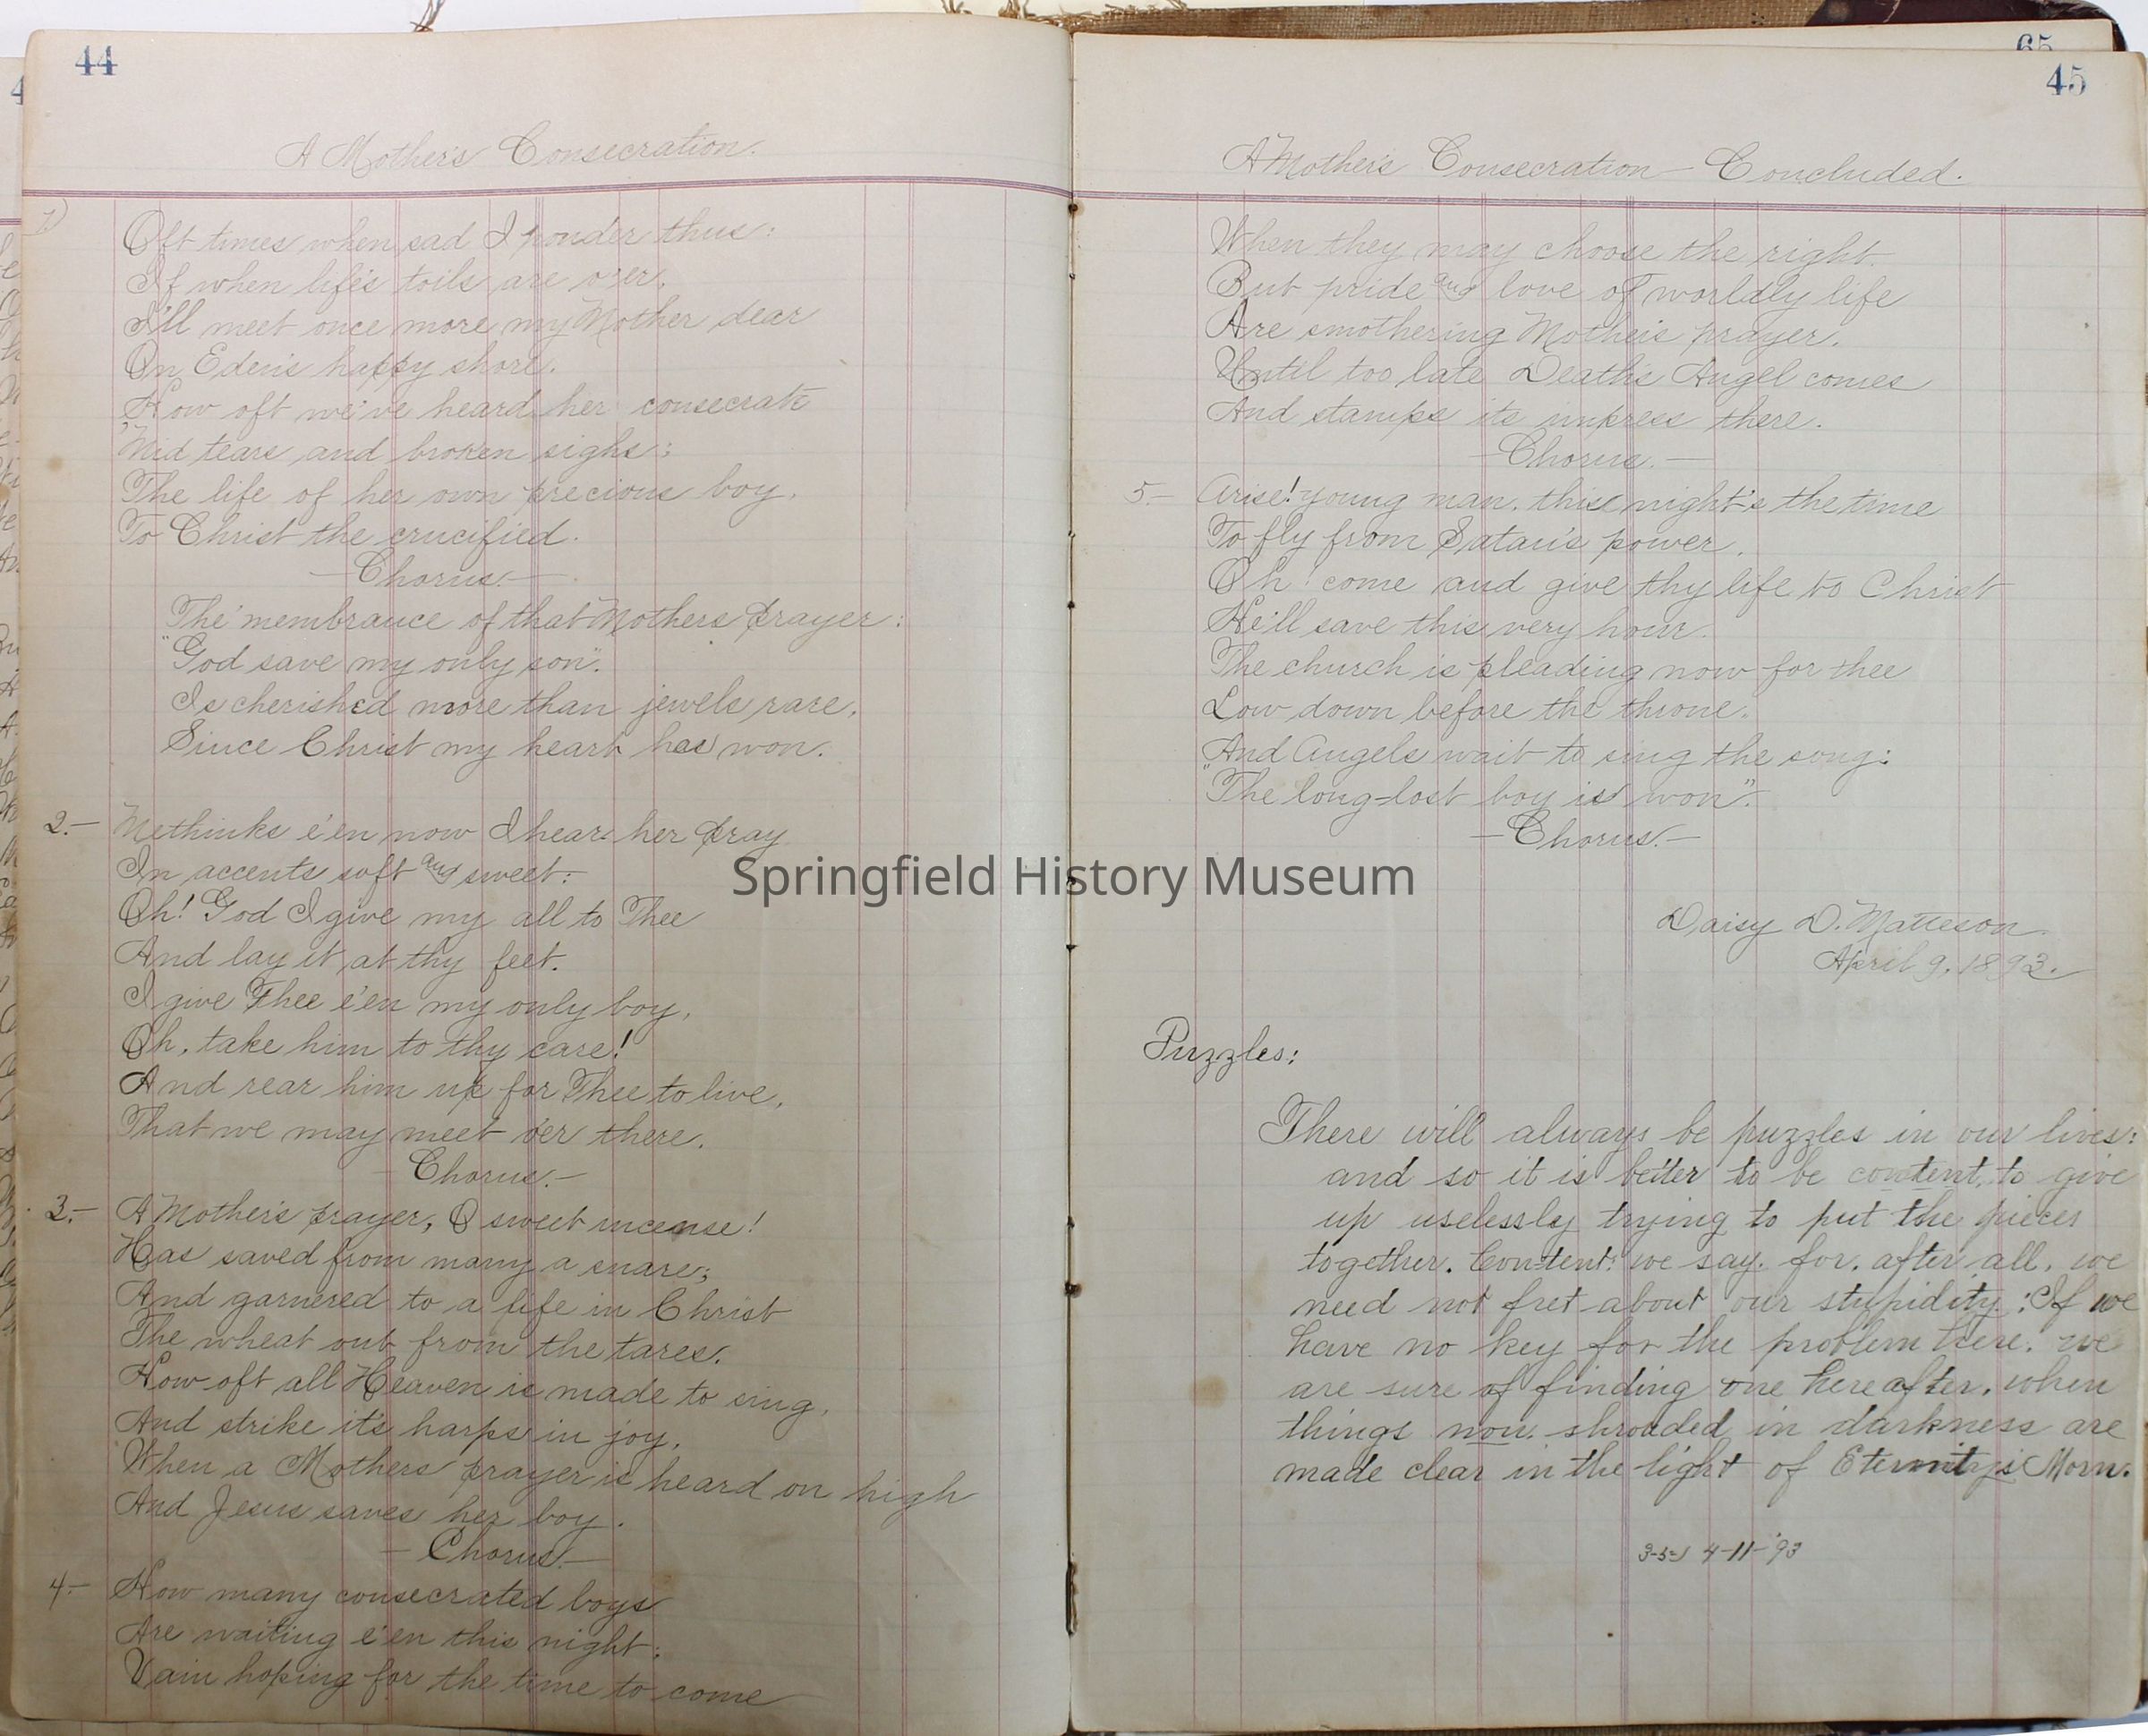 44
A Mother's Consecration.
1)
Oft times when sad I ponder thus:
If when life's toils are o'er,
I'll meet once more my Mother dear
On Eden's happy shore.
How oft we've heard her consecrate
'Mid tears and broken sighs:
The life of her own precious boy,
To Christ the crucified.
— Chorus. —
The 'membrance of that Mothers prayer:
"God save my only son".
Is cherished more than jewels rare,
Since Christ my heart has won.
2.— Methinks e'en now I hear her pray
In accents soft and sweet:
Oh! God I give my all to Thee
And lay it at thy feet.
I give Thee e'en my only boy,
Oh, take him to thy care!
And rear him up for Thee to live,
That we may meet o'er there.
— Chorus. —
3.— A Mother's prayer, O sweet incense!
Has saved from many a snare;
And garnered to a life in Christ
The wheat out from the tares.
How oft all Heaven is made to sing,
And strike it's harps in joy,
When a Mothers prayer is heard on high
And Jesus saves her boy.
— Chorus. —
4.— How many consecrated boys
Are waiting e'en this night:
Vain hoping for the time to come
65
45
A Mother's Consecration — Concluded.
When they may choose the right.
But pride and love of worldly life
Are smothering Mother's prayer.
Until too late Deaths Angel comes
And stamps its impress there.
— Chorus. —
5.— Arise! young man, this night's the time
To fly from Satan's power.
Oh! come and give thy life to Christ
He'll save this very hour.
The church is pleading now for thee
Low down before the throne.
And Angels wait to sing the song:
"The long-lost boy is won".
— Chorus. —
Springfield History Museum
Daisy D. Matteson.
April 9, 1893.
Puzzles:
There will always be puzzles in our lives:
and so it is better to be content, to give
up uselessly trying to put the pieces
together. Content! we say. for, after all, we
need not fret about our stupidity: If we
have no key for the problem here, we
are sure of finding one hereafter, when
things now shrouded in darkness are
made clear in the light of Eternity's Morn.
4-11-'93